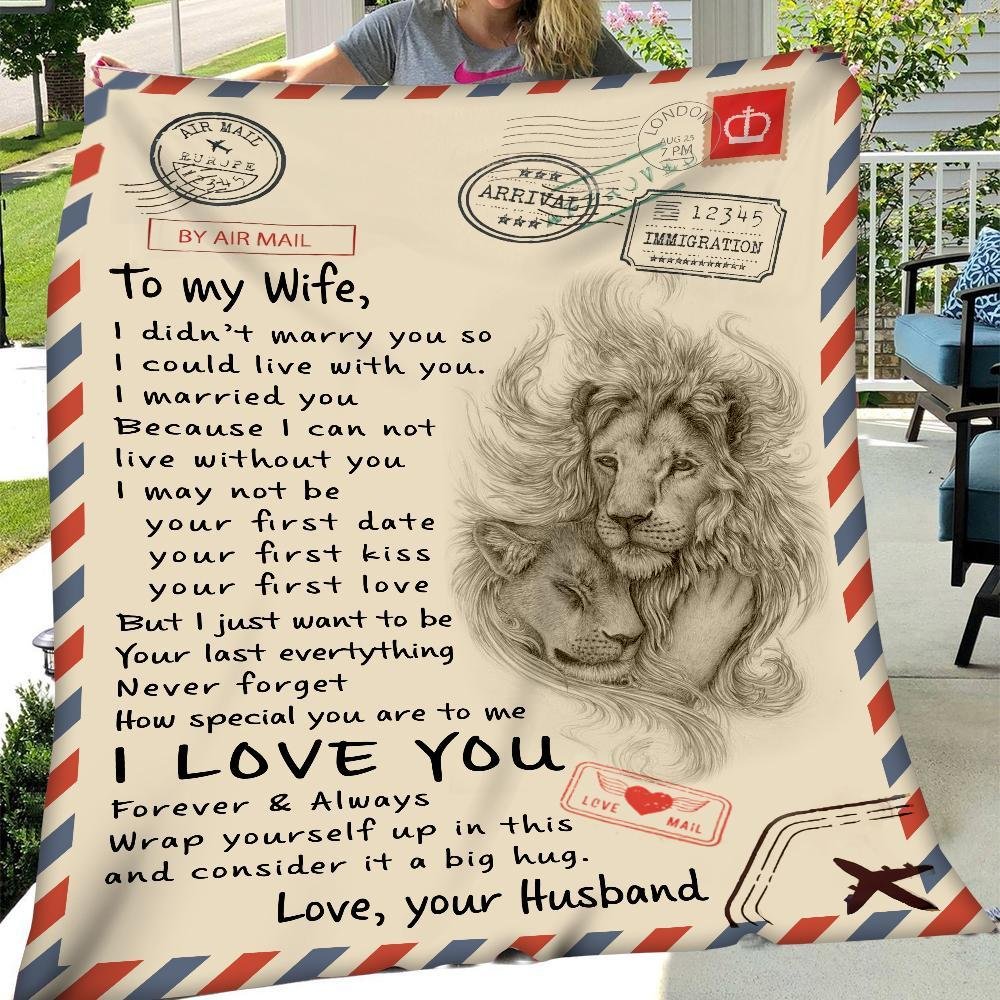 AIR MAIL
EUROPE
12345
BY AIR MAIL
LONDON
AUG 25
7 PM
ARRIVAL
12345
IMMIGRATION
To my Wife,
I didn't marry you so
I could live with you.
I married you
Because I can not
live without you
I may not be
your first date
your first kiss
your first love
But I just want to be
Your last evertything
Never forget
How special you are to me
I LOVE YOU
Forever & Always
Wrap yourself up in this
and consider it a big hug.
Love, your Husband
LOVE MAIL